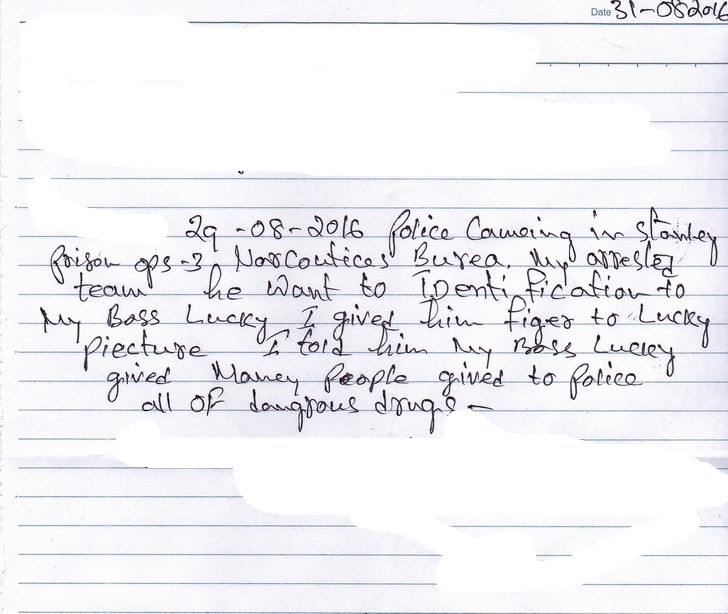 Date 31-082016
29-08-2016 Police Cameing in Stanley
prison ops-3 Narcoutices Burea. My arrested
team he want to Identification to
My Boss Lucky I gived him figer to Lucky
piecture I told him My Boss Lucky
gived Maney People gived to police
all OF dangrous drugs -